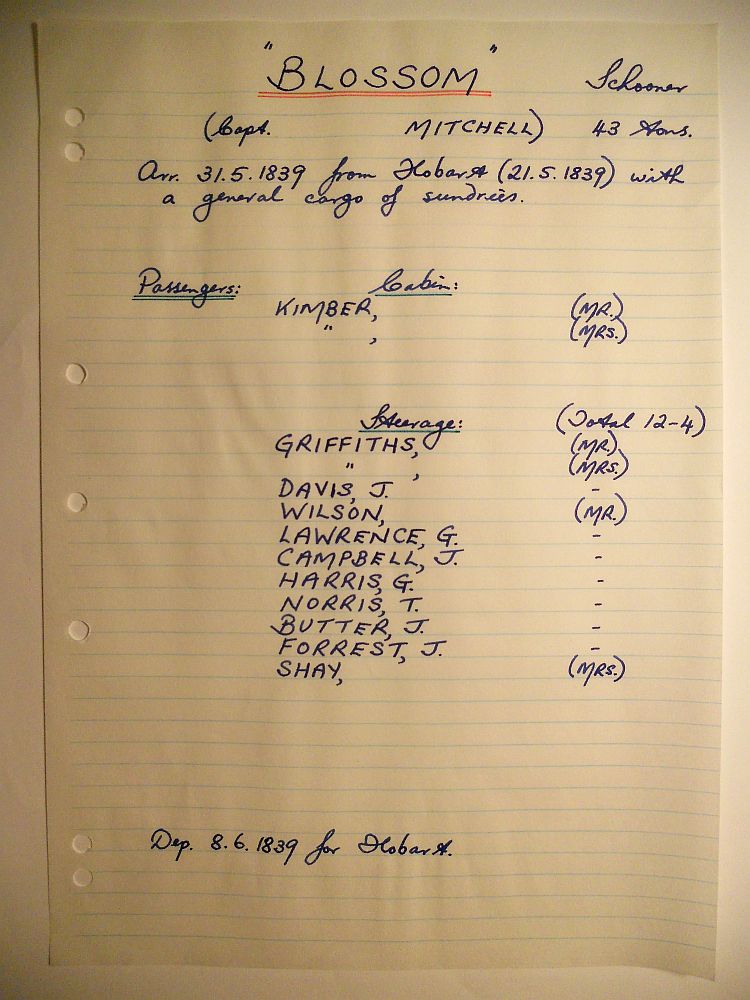 "BLOSSOM" Schooner
(Capt. MITCHELL) 43 tons.
Arr. 31.5.1839 from Hobart (21.5.1839) with
a general cargo of sundries.
Passengers: Cabin:
KIMBER, (MR.)
" , (MRS.)
Steerage: (Total 12-4)
GRIFFITHS, (MR.)
" , (MRS.)
DAVIS, J. -
WILSON, (MR.)
LAWRENCE, G. -
CAMPBELL, J. -
HARRIS, G. -
NORRIS, T. -
BUTTER, J. -
FORREST, J. -
SHAY, (MRS.)
Dep. 8.6.1839 for Hobart.